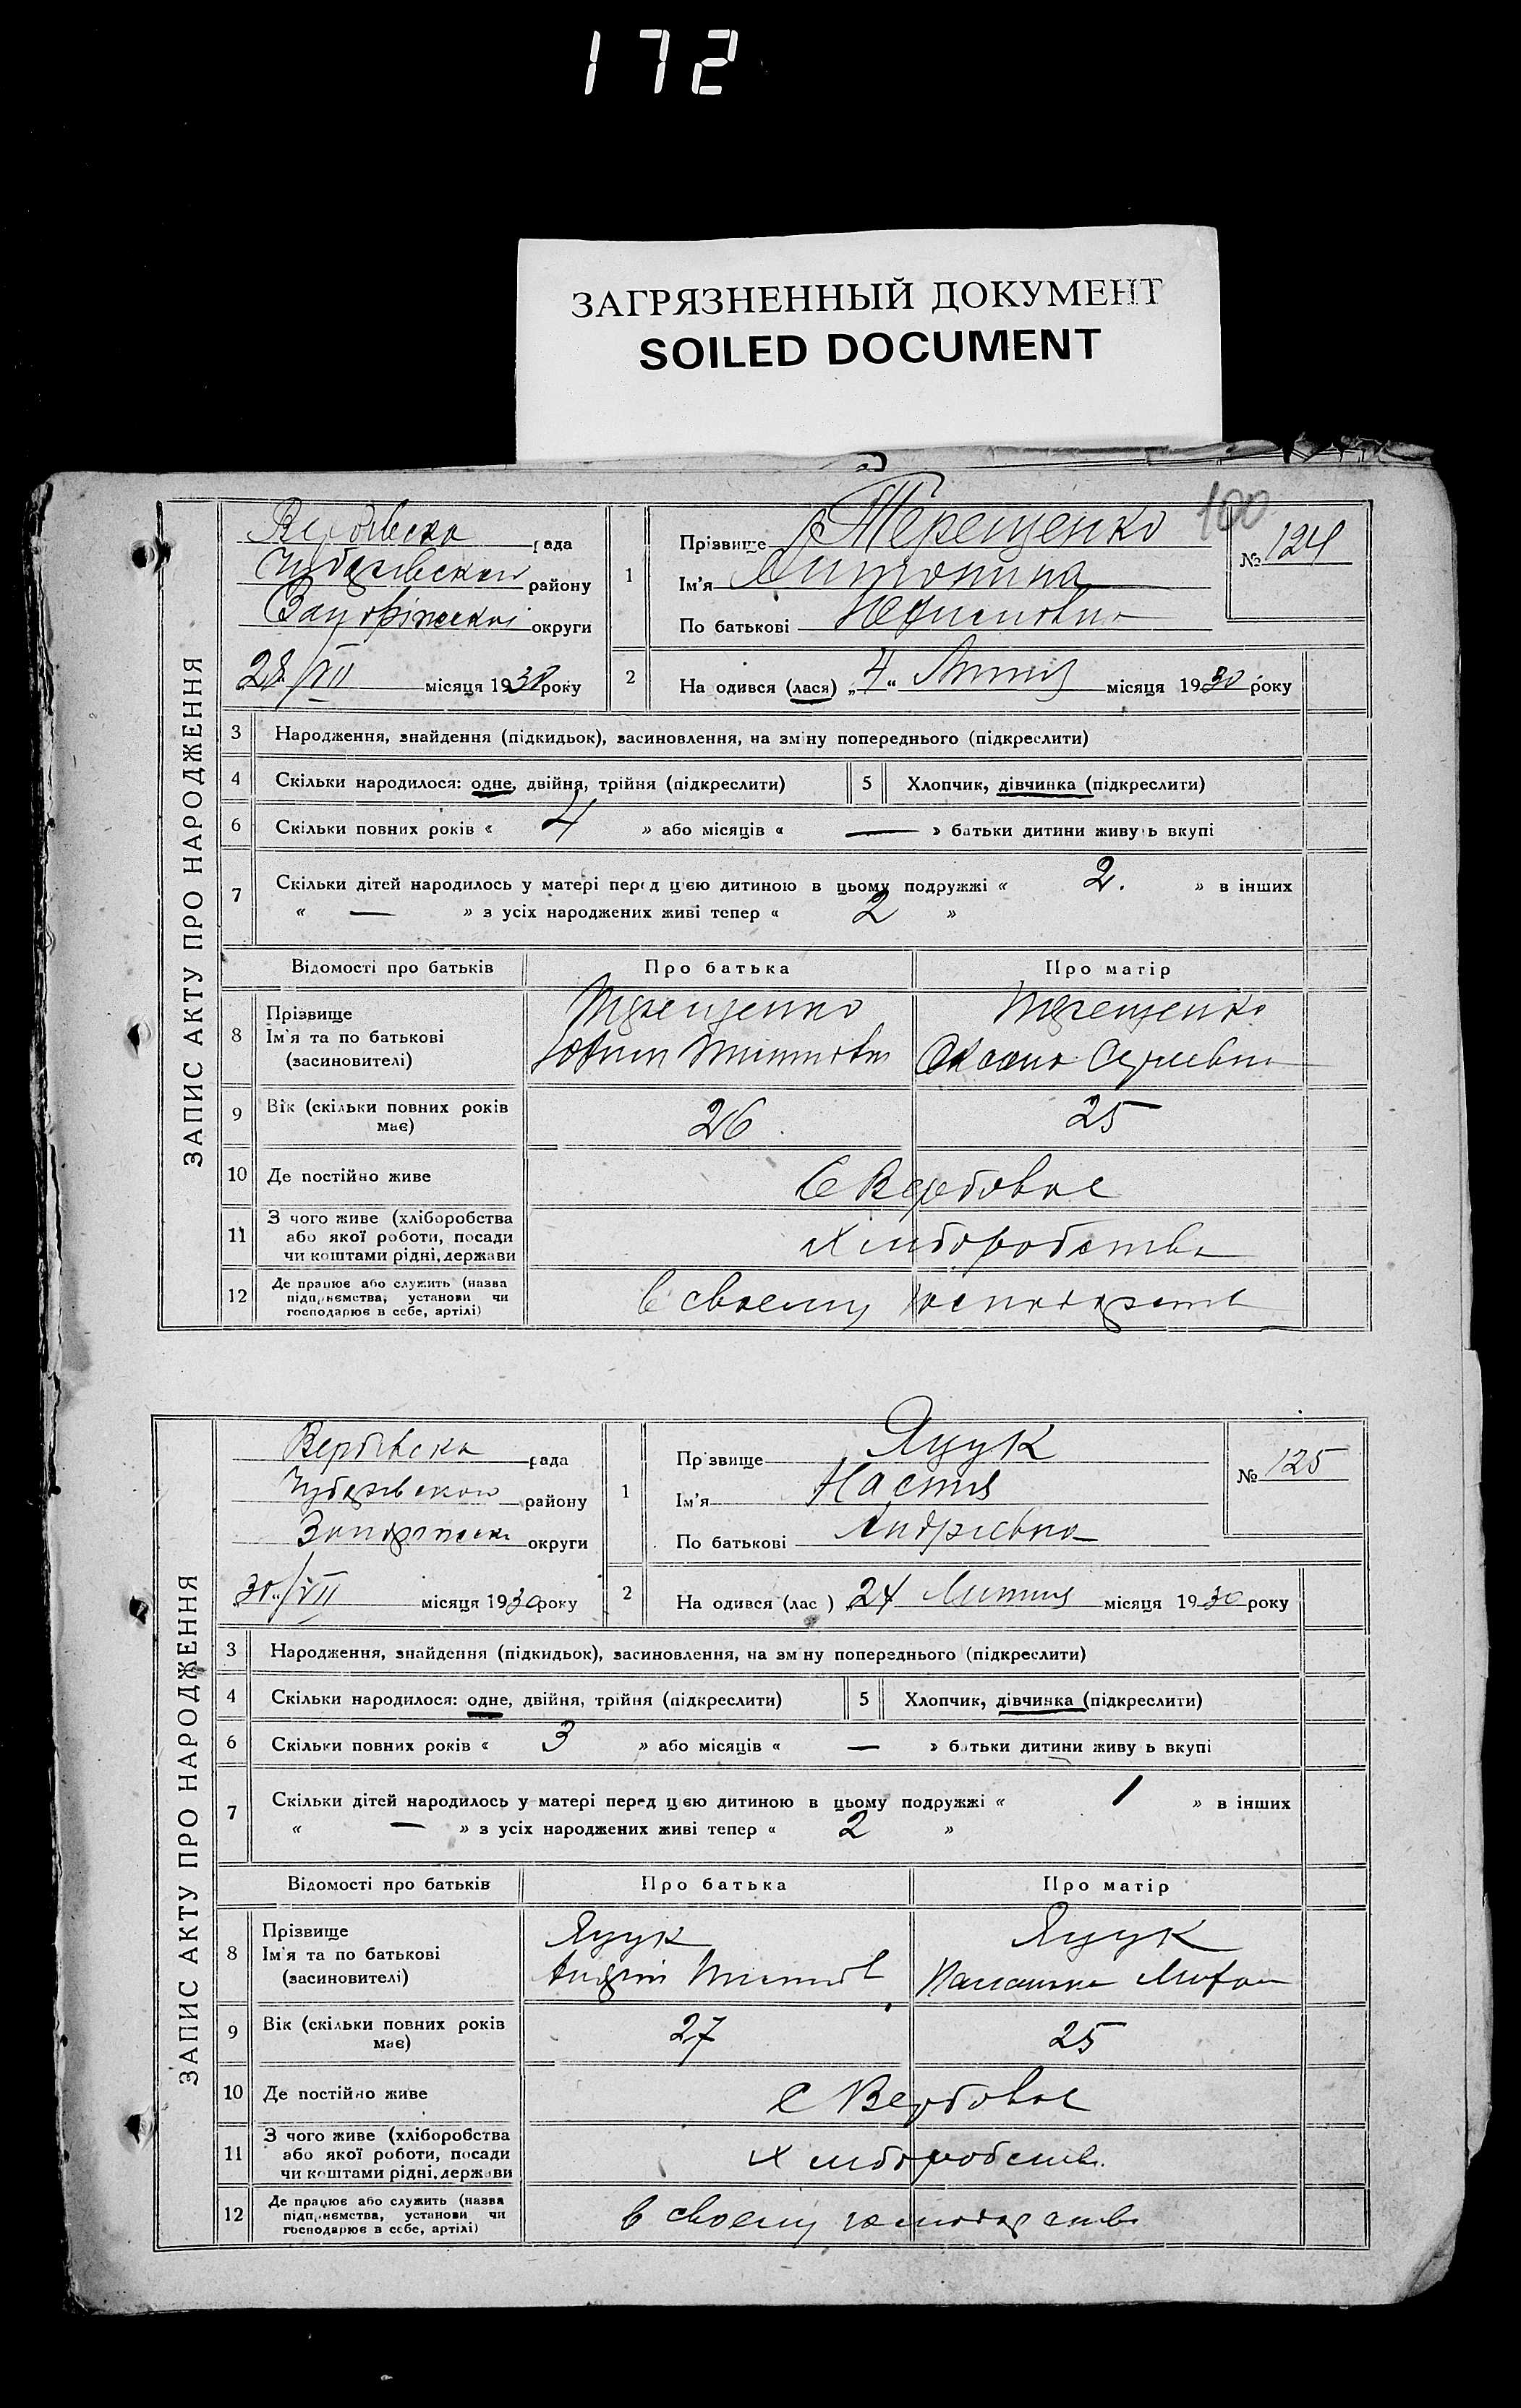 172
ЗАГРЯЗНЕННЫЙ ДОКУМЕНТ
SOILED DOCUMENT
100
ЗАПИС АКТУ ПРО НАРОДЖЕННЯ
Вербівска рада
району
округи
28/VII місяця 1930 року
1
Прізвище Терещенко
Ім'я Антонина
По батькові
№ 124
2 На одився (лася) „4“ Липня місяця 1930 року
3 Народження, знайдення (підкидьок), засиновлення, на зміну попереднього (підкреслити)
4 Скільки народилося: одне, двійня, трійня (підкреслити) 5 Хлопчик, дівчинка (підкреслити)
6 Скільки повних років « 4 » або місяців « — » батьки дитини живуть вкупі
7 Скільки дітей народилось у матері перед цією дитиною в цьому подружжі « 2. » в інших
« — » з усіх народжених живі тепер « 2 »
Відомості про батьків Про батька Про матір
8 Прізвище
Ім'я та по батькові
(засиновителі)
Терещенко
Терещенко
Оксана
9 Вік (скільки повних років має) 26 25
10 Де постійно живе С Вербовое
11 З чого живе (хліборобства
або якої роботи, посади
чи коштами рідні, держави
Хліборобства
12 Де працює або служить (назва
підприємства, установи чи
господарює в себе, артілі)
в своему господарств
ЗАПИС АКТУ ПРО НАРОДЖЕННЯ
Вербівска рада
району
округи
30/VII місяця 1930 року
1
Пр звище Яцук
Ім'я Настя
По батькові Андріевна
№ 125
2 На одився (лас ) 24 Липня місяця 1930 року
3 Народження, знайдення (підкидьок), засиновлення, на зм ну попереднього (підкреслити)
4 Скільки народилося: одне, двійня, трійня (підкреслити) 5 Хлопчик, дівчинка (підкреслити)
6 Скільки повних років « 3 » або місяців « — » батьки дитини живу ь вкупі
7 Скільки дітей народилось у матері перед цією дитиною в цьому подружжі « 1 » в інших
« — » з усіх народжених живі тепер « 2 »
Відомості про батьків Про батька Про матір
8 Прізвище
Ім'я та по батькові
(засиновителі)
Яцук
Андрій
Яцук
9 Вік (скільки повних років має) 27 25
10 Де постійно живе С Вербовое
11 З чого живе (хліборобства
або якої роботи, посади
чи коштами рідні, держави
Хліборобств
12 Де працює або служить (назва
підприємства, установи чи
господарює в себе, артілі)
в своему господарств